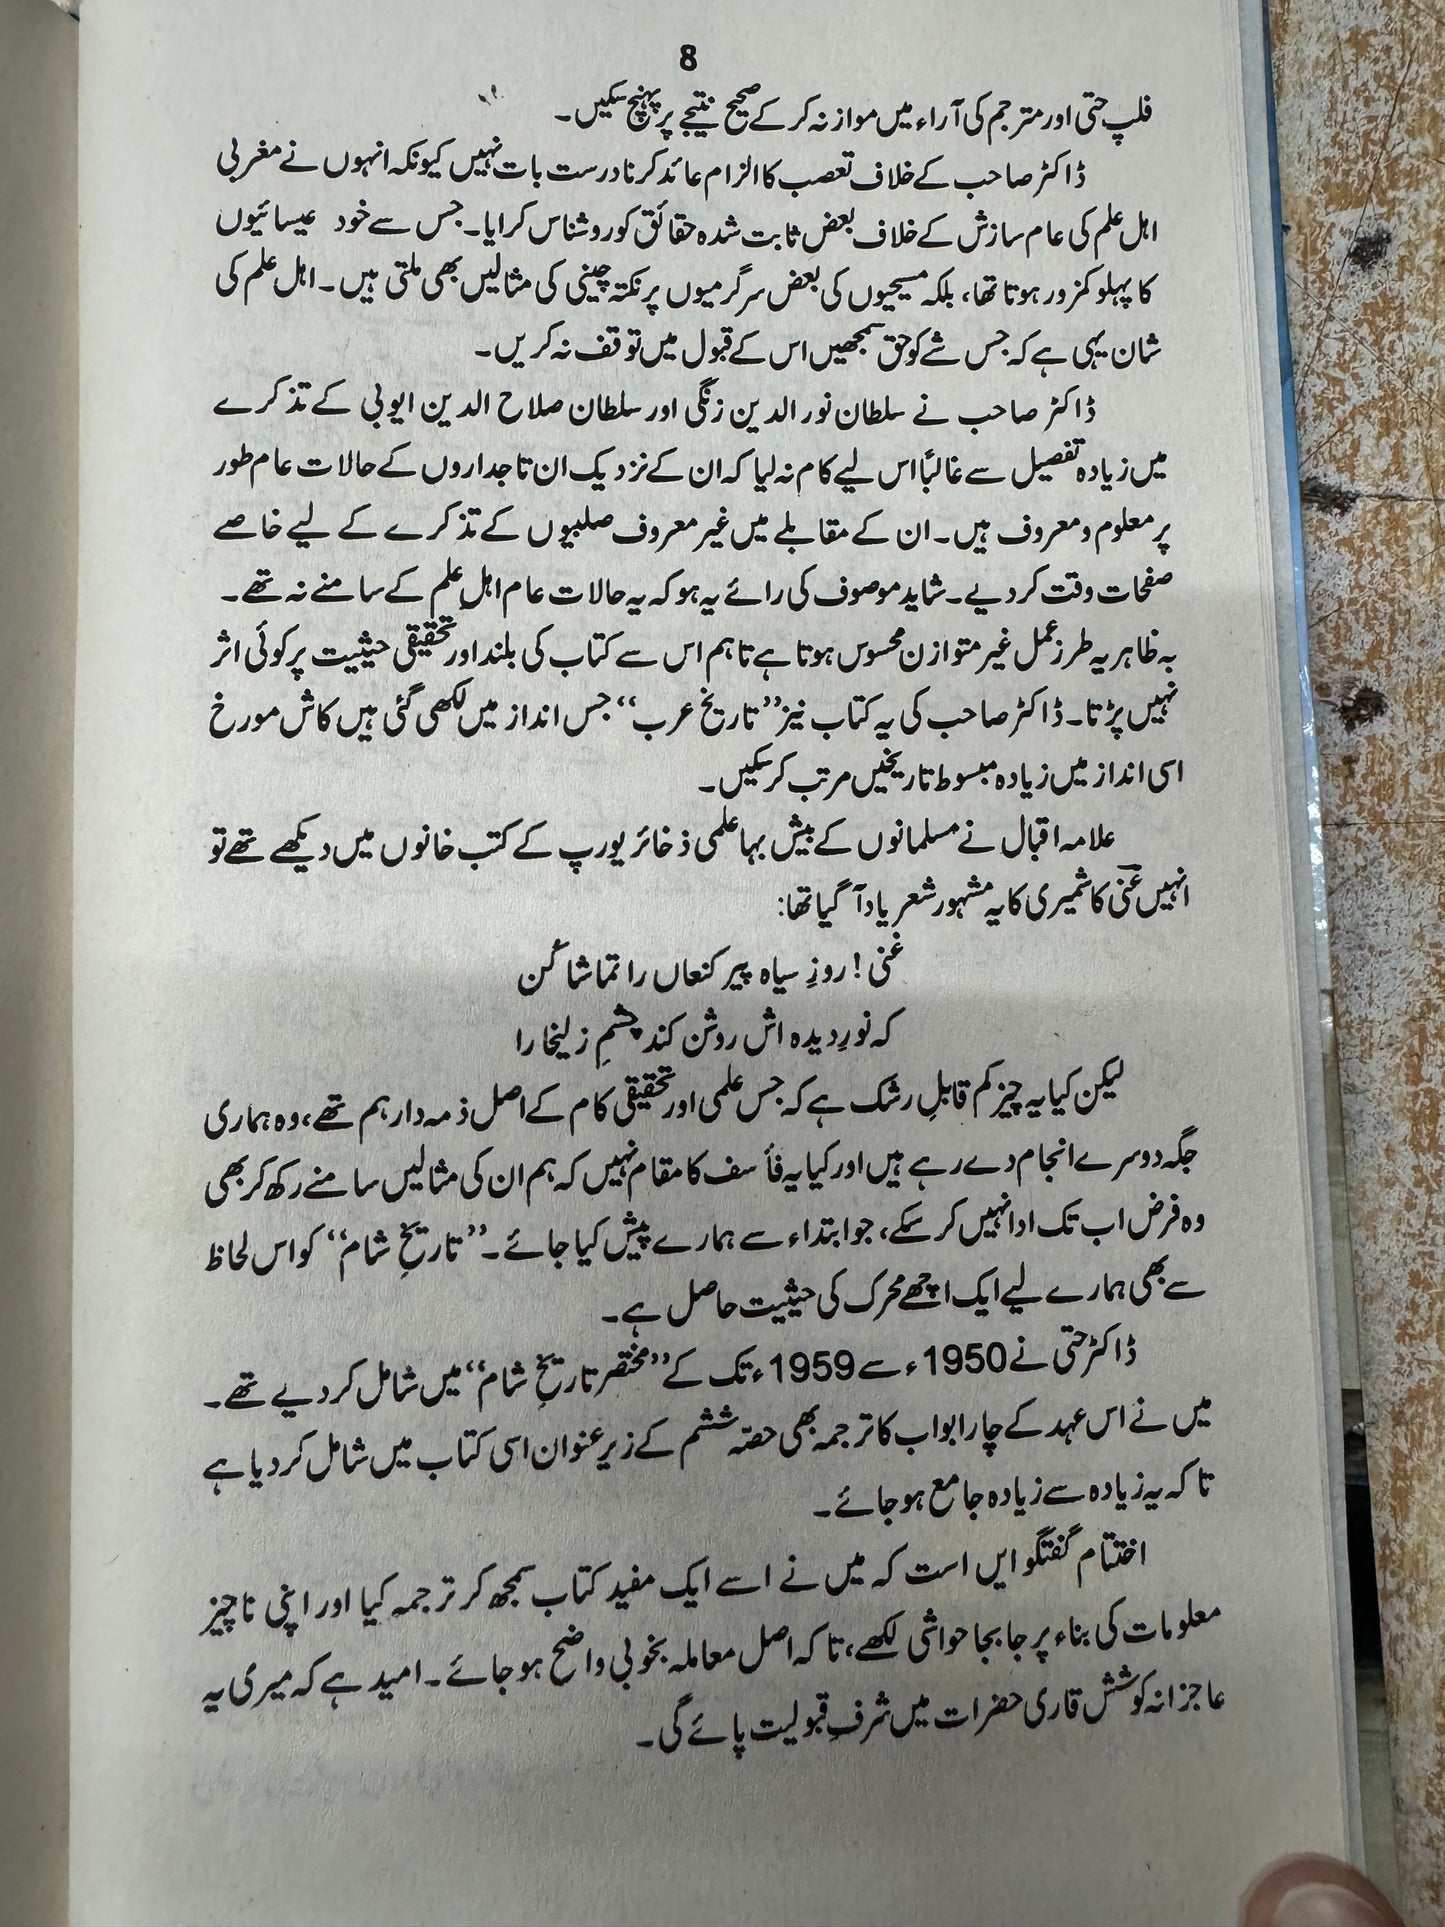 8
فلپ حتی اور مترجم کی آراء میں موازنہ کر کے صحیح نتیجے پر پہنچ سکیں۔
ڈاکٹر صاحب کے خلاف تعصب کا الزام عائد کرنا درست بات نہیں کیونکہ انہوں نے مغربی
اہل علم کی عام سازش کے خلاف بعض ثابت شدہ حقائق کو روشناس کرایا۔ جس سے خود عیسائیوں
کا پہلو کمزور ہوتا تھا، بلکہ مسیحیوں کی بعض سرگرمیوں پر نکتہ چینی کی مثالیں بھی ملتی ہیں۔ اہل علم کی
شان یہی ہے کہ جس شے کو حق سمجھیں اس کے قبول میں توقف نہ کریں۔
ڈاکٹر صاحب نے سلطان نور الدین زنگی اور سلطان صلاح الدین ایوبی کے تذکرے
میں زیادہ تفصیل سے غالباً اس لیے کام نہ لیا کہ ان کے نزدیک ان تاجداروں کے حالات عام طور
پر معلوم و معروف ہیں۔ ان کے مقابلے میں غیر معروف صلیبیوں کے تذکرے کے لیے خاصے
صفحات وقت کر دیے۔ شاید موصوف کی رائے یہ ہو کہ یہ حالات عام اہلِ علم کے سامنے نہ تھے۔
بہ ظاہر یہ طرز عمل غیر متوازن محسوس ہوتا ہے تاہم اس سے کتاب کی بلند اور تحقیقی حیثیت پر کوئی اثر
نہیں پڑتا۔ ڈاکٹر صاحب کی یہ کتاب نیز ”تاریخ عرب“ جس انداز میں لکھی گئی ہیں کاش مورخ
اسی انداز میں زیادہ مبسوط تاریخیں مرتب کر سکیں۔
علامہ اقبال نے مسلمانوں کے بیش بہا علمی ذخائر یورپ کے کتب خانوں میں دیکھے تھے تو
انہیں غنی کاشمیری کا یہ مشہور شعر یاد آ گیا تھا:
غنی! روزِ سیاہ پیر کنعاں را تماشا کُن
کہ نورِ دیدہ اش روشن کند چشمِ زلیخا را
لیکن کیا یہ چیز کم قابلِ رشک ہے کہ جس علمی اور تحقیقی کام کے اصل ذمہ دار ہم تھے، وہ ہماری
جگہ دوسرے انجام دے رہے ہیں اور کیا یہ فأسف کا مقام نہیں کہ ہم ان کی مثالیں سامنے رکھ کر بھی
وہ فرض اب تک ادا نہیں کر سکے، جو ابتداء سے ہمارے پیش کیا جائے۔ ”تاریخِ شام“ کو اس لحاظ
سے بھی ہمارے لیے ایک اچھے محرک کی حیثیت حاصل ہے۔
ڈاکٹر حتی نے 1950ء سے 1959ء تک کے ”مختصر تاریخِ شام“ میں شامل کر دیے تھے۔
میں نے اس عہد کے چار ابواب کا ترجمہ بھی حصّہ ششم کے زیرِ عنوان اسی کتاب میں شامل کر دیا ہے
تا کہ یہ زیادہ سے زیادہ جامع ہو جائے۔
اختتام گفتگو ایں است کہ میں نے اسے ایک مفید کتاب سمجھ کر ترجمہ کیا اور اپنی ناچیز
معلومات کی بناء پر جا بجا حواشی لکھے، تا کہ اصل معاملہ بخوبی واضح ہو جائے۔ امید ہے کہ میری یہ
عاجزانہ کوشش قاری حضرات میں شرفِ قبولیت پائے گی۔